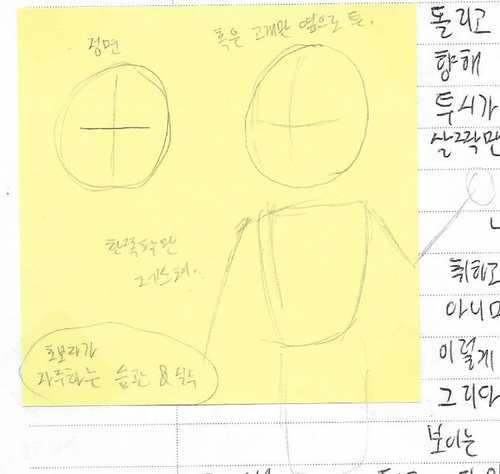 정면
혹은 고개만 옆으로 튼.
한쪽 손만
제스처..
초보자가
자주하는 습관 & 실수
돌리고
향해
투시가
살짝만
취하고
아니고
이렇게
그리다
보이는